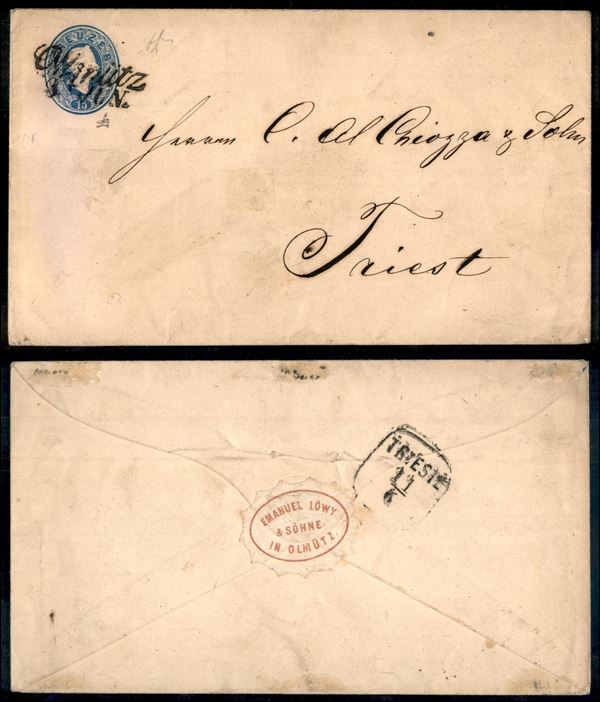 KREUZER
15
Olmütz
JUN.
Herrn C. Al Chiozza & Sohn
Triest
TRIEST
11
6
EMANUEL LÖWY
& SÖHNE
IN OLMÜTZ